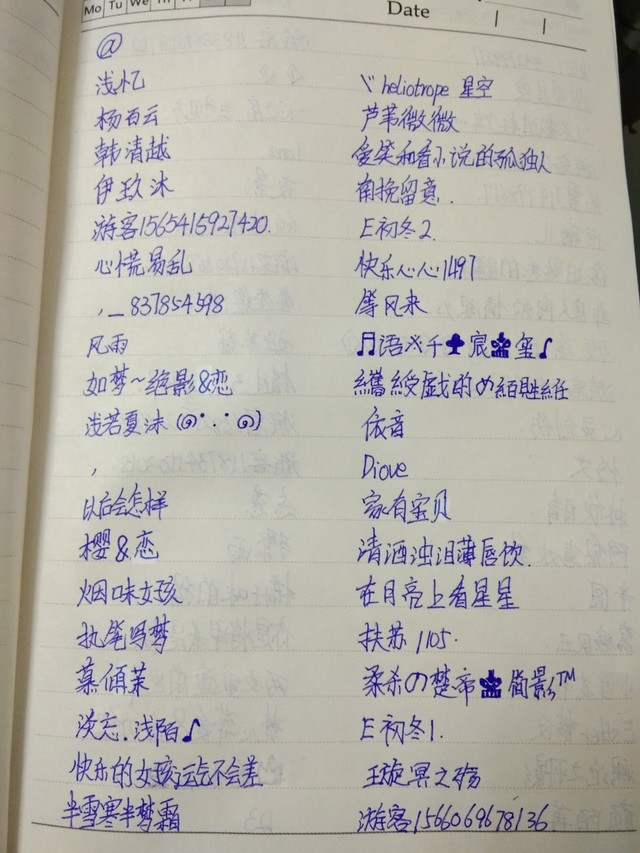 Mo Tu We Th Fr
Date
@
浅忆
杨百云
韩清越
伊玖沐
游客1565415927420.
心慌易乱
,_837854598
风雨
如梦~绝影&恋
浅若夏沫(๑˙·˙๑)
,
以后会怎样
樱&恋
烟味女孩
执笔写梦
慕傾茉
淡忘.浅陌♪
快乐的女孩运气不会差
半雪寒半梦霜
heliotrope 星空
芦苇微微
爱笑和看小说的孤独人
南挽留意.
E初冬2.
快乐心心1497
等风来
♬语ㄨ千♣宸♚玺♪
戲的め
依音
Diove
家有宝贝
清酒浊泪薄唇饮.
在月亮上看星星
扶苏1105.
柔杀の楚帝♚简影™
E初冬1.
王旋冥之殇
游客1566069678136